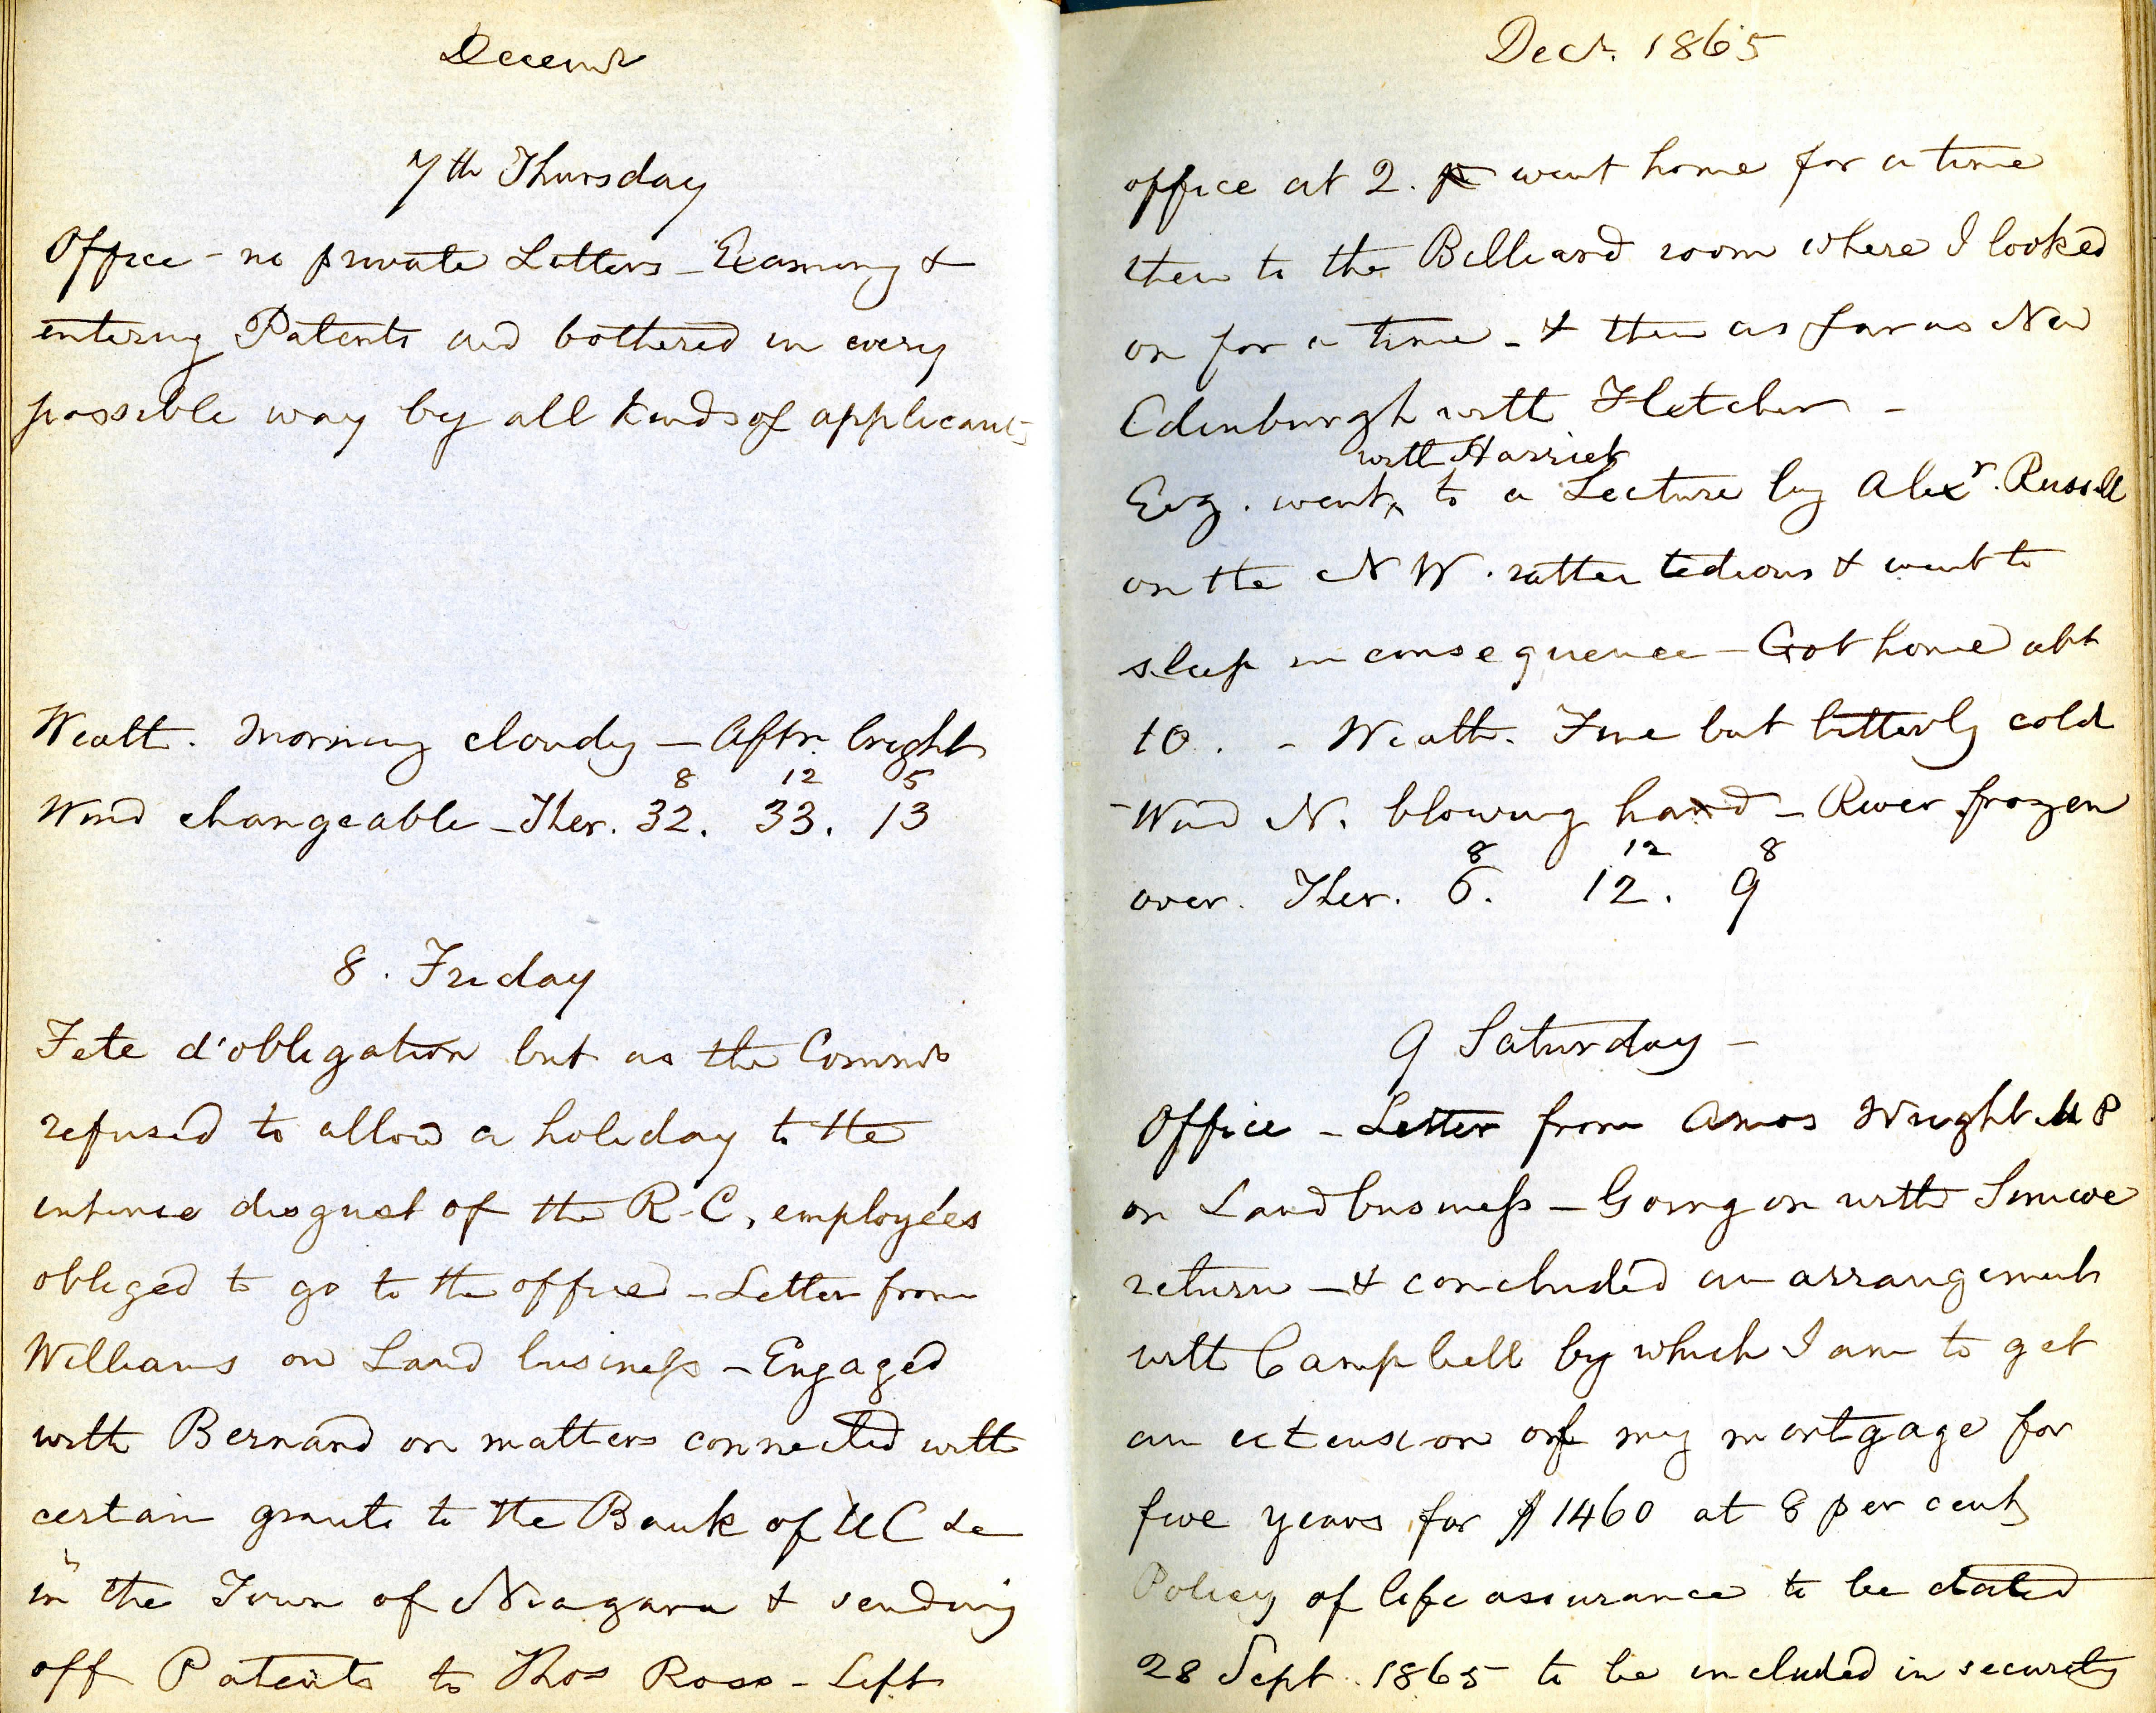 Decemr
7th Thursday
Office - no private Letters - Examing &
entering Patents and bothered in every
possible way by all kinds of applicants
Weath. Morning cloudy - Aftr. bright
8 12 5
Wind changeable - Ther. 32. 33. 13
8. Friday
Fete d'obligation but as the Commrs
refused to allow a holiday to the
intense disgust of the R.C. employées
obliged to go to the office - Letter from
Williams on Land business - Engaged
with Bernard on matters connected with
certain grants to the Bank of UC &c
in the Town of Niagara & sending
off Patents to Thos Ross - Left
Decr. 1865
office at 2. went home for a time
then to the Billiard room where I looked
on for a time - & then as far as New
Edinburgh with Fletcher -
with Harriet
Evg. went to a Lecture by Alexr. Russell
on the N W. rather tedious & went to
sleep in consequence - Got home abt
10. - Weath. Fine but bitterly cold
- Wind N. blowing hard - River frozen
8 12 8
over. Ther. 6. 12. 9
9 Saturday -
Office - Letter from Amos Wright MP
on Land business - Going on with Simcoe
return - & concluded an arrangement
with Campbell by which I am to get
an extension of my mortgage for
five years for $1460 at 8 per cent
Policy of life assurance to be dated
28 Sept. 1865 to be included in security